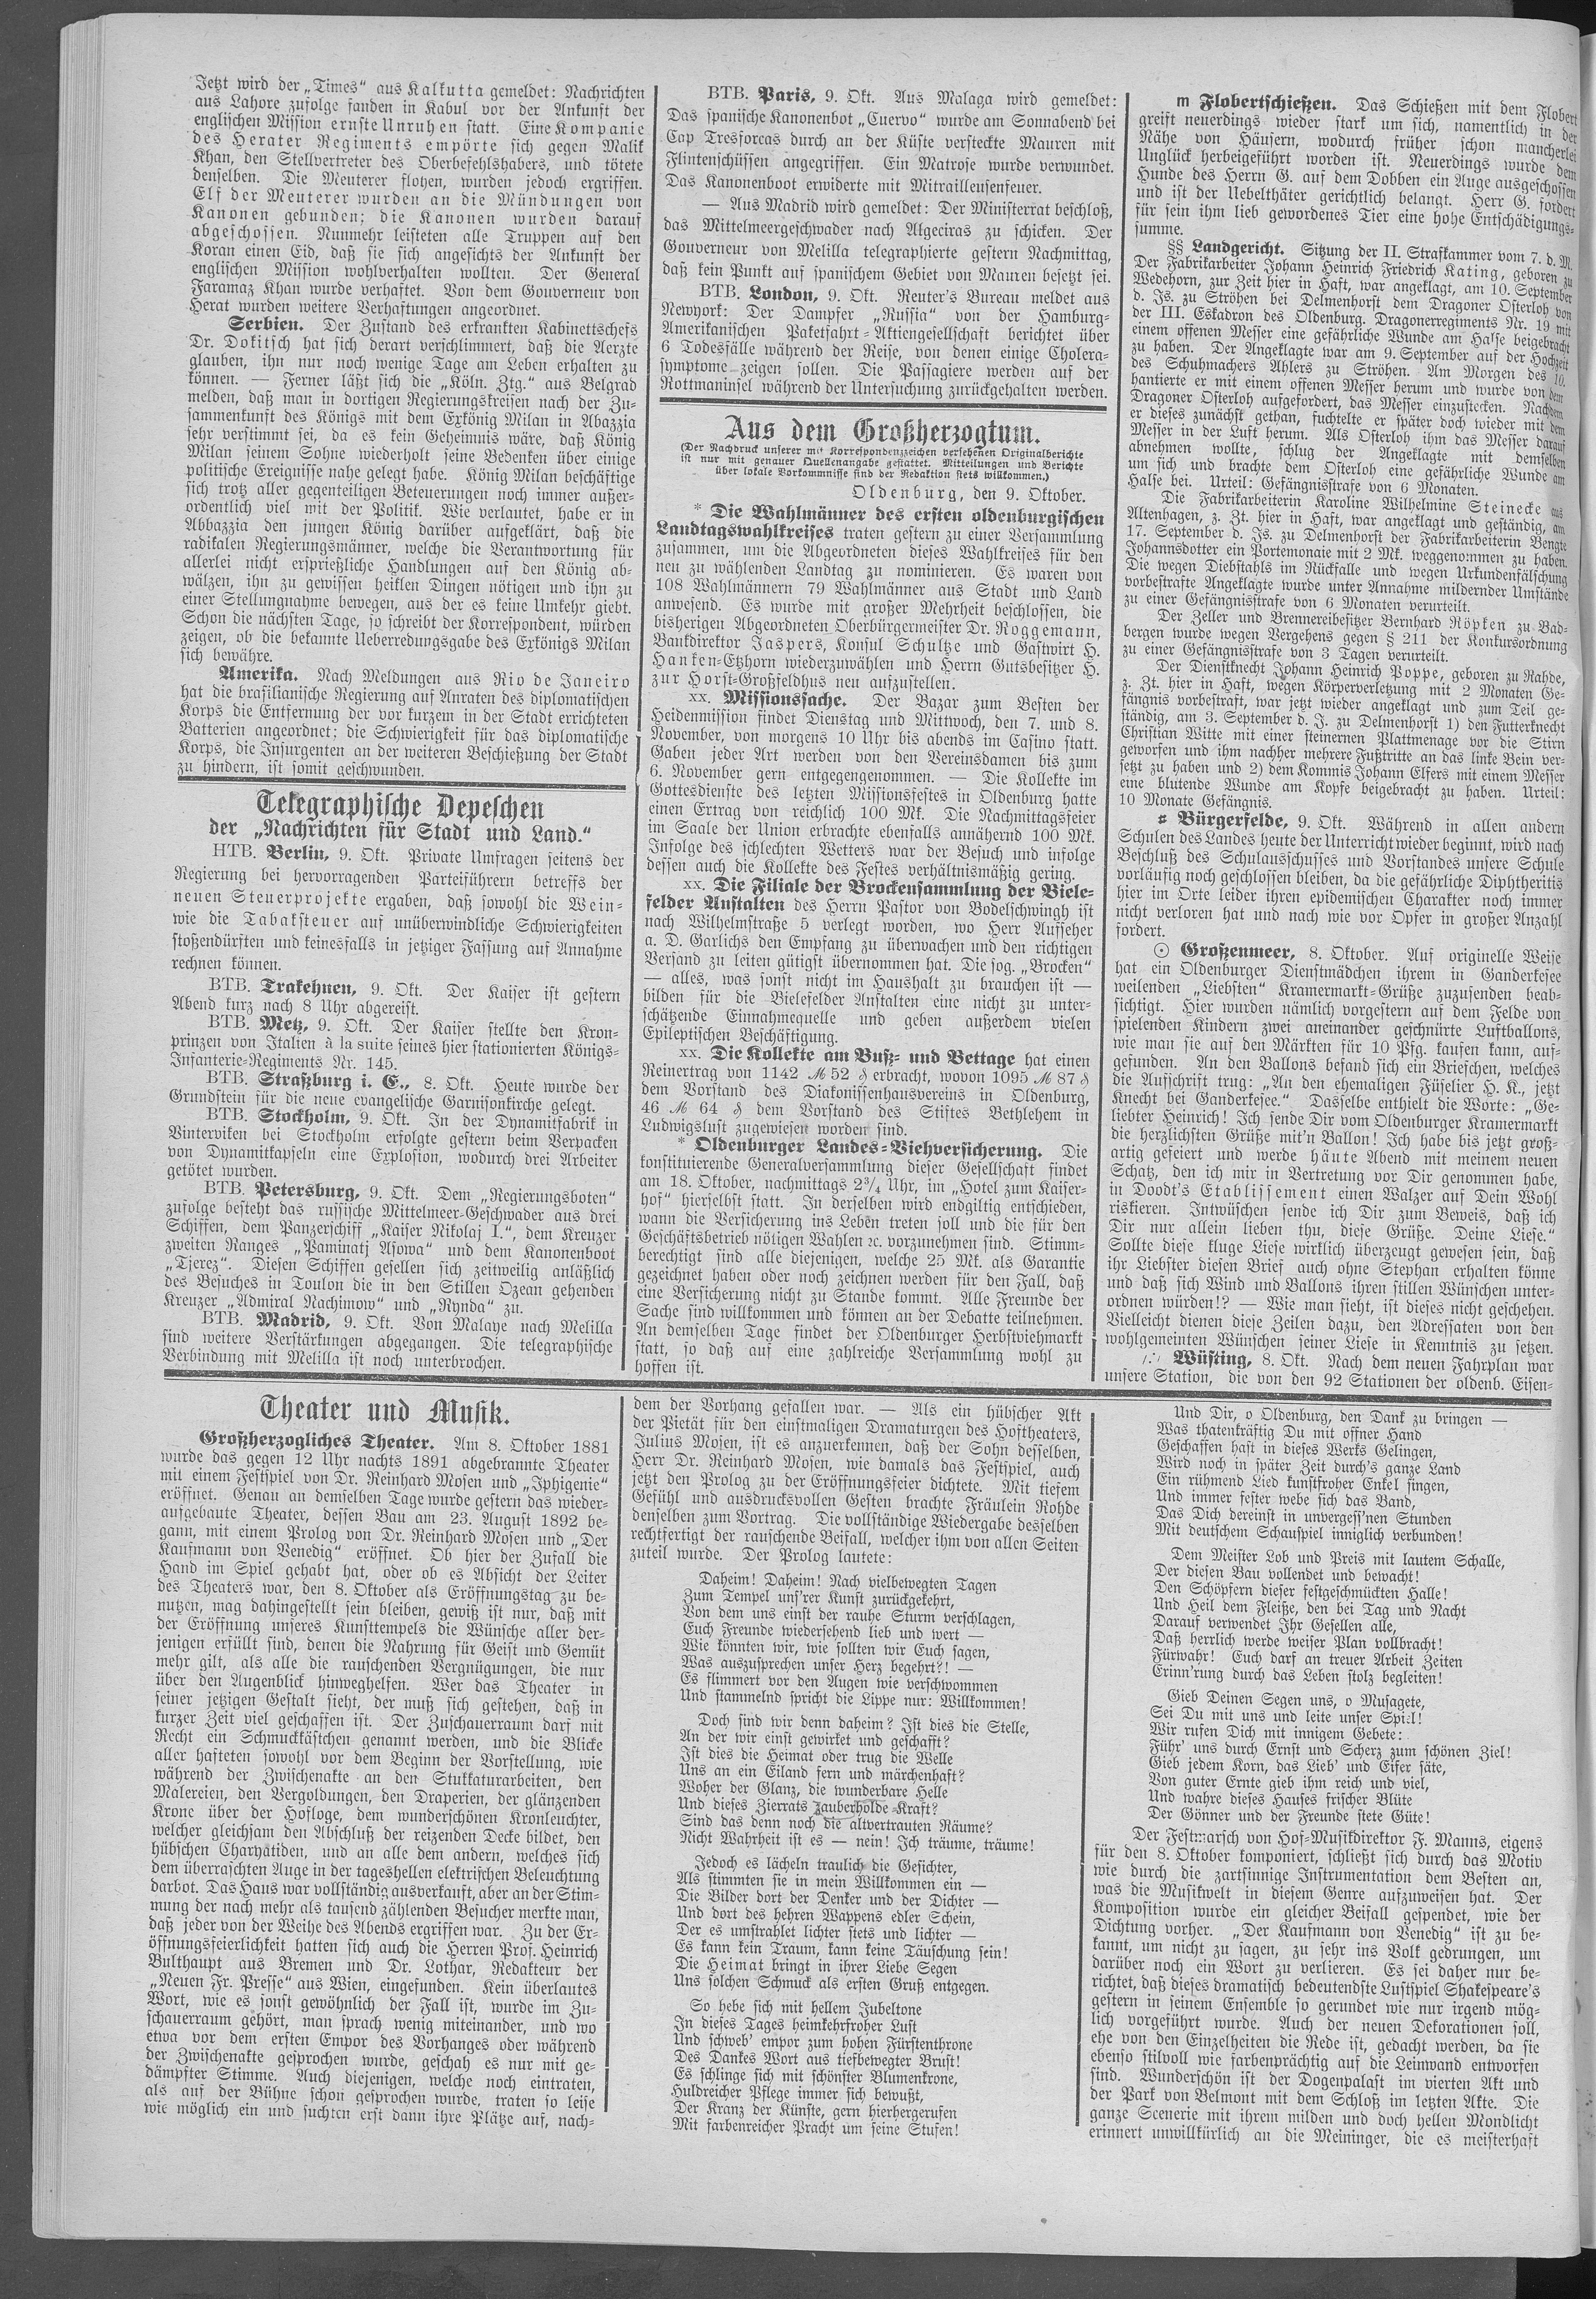 Jetzt wird der „Times“ aus Kalkutta gemeldet: Nachrichten
aus Lahore zufolge fanden in Kabul vor der Ankunft der
englischen Mission ernste Unruhen statt. Eine Kompanie
des Herater Regiments empörte sich gegen Malik
Khan, den Stellvertreter des Oberbefehlshabers, und tötete
denselben. Die Meuterer flohen, wurden jedoch ergriffen.
Elf der Meuterer wurden an die Mündungen von
Kanonen gebunden; die Kanonen wurden darauf
abgeschossen. Nunmehr leisteten alle Truppen auf den
Koran einen Eid, daß sie sich angesichts der Ankunft der
englischen Mission wohlverhalten wollten. Der General
Faramaz Khan wurde verhaftet. Von dem Gouverneur von
Herat wurden weitere Verhaftungen angeordnet.
Serbien. Der Zustand des erkrankten Kabinettschefs
Dr. Dokitsch hat sich derart verschlimmert, daß die Aerzte
glauben, ihn nur noch wenige Tage am Leben erhalten zu
können. — Ferner läßt sich die „Köln. Ztg.“ aus Belgrad
melden, daß man in dortigen Regierungskreisen nach der Zu-
sammenkunft des Königs mit dem Exkönig Milan in Abazzia
sehr verstimmt sei, da es kein Geheimnis wäre, daß König
Milan seinem Sohne wiederholt seine Bedenken über einige
politische Ereignisse nahe gelegt habe. König Milan beschäftige
sich trotz aller gegenteiligen Beteuerungen noch immer außer-
ordentlich viel mit der Politik. Wie verlautet, habe er in
Abbazzia den jungen König darüber aufgeklärt, daß die
radikalen Regierungsmänner, welche die Verantwortung für
allerlei nicht ersprießliche Handlungen auf den König ab-
wälzen, ihn zu gewissen heiklen Dingen nötigen und ihn zu
einer Stellungnahme bewegen, aus der es keine Umkehr giebt.
Schon die nächsten Tage, so schreibt der Korrespondent, würden
zeigen, ob die bekannte Ueberredungsgabe des Exkönigs Milan
sich bewähre.
Amerika. Nach Meldungen aus Rio de Janeiro
hat die brasilianische Regierung auf Anraten des diplomatischen
Korps die Entfernung der vor kurzem in der Stadt errichteten
Batterien angeordnet; die Schwierigkeit für das diplomatische
Korps, die Insurgenten an der weiteren Beschießung der Stadt
zu hindern, ist somit geschwunden.
Telegraphische Depeschen
der „Nachrichten für Stadt und Land.“
HTB. Berlin, 9. Okt. Private Umfragen seitens der
Regierung bei hervorragenden Parteiführern betreffs der
neuen Steuerprojekte ergaben, daß sowohl die Wein-
wie die Tabaksteuer auf unüberwindliche Schwierigkeiten
stoßendürften und keinesfalls in jetziger Fassung auf Annahme
rechnen können.
BTB. Trakehnen, 9. Okt. Der Kaiser ist gestern
Abend kurz nach 8 Uhr abgereist.
BTB. Metz, 9. Okt. Der Kaiser stellte den Kron-
prinzen von Italien à la suite seines hier stationierten Königs-
Infanterie-Regiments Nr. 145.
BTB. Straßburg i. E., 8. Okt. Heute wurde der
Grundstein für die neue evangelische Garnisonkirche gelegt.
BTB. Stockholm, 9. Okt. In der Dynamitfabrik in
Vinterviken bei Stockholm erfolgte gestern beim Verpacken
von Dynamitkapseln eine Explosion, wodurch drei Arbeiter
getötet wurden.
BTB. Petersburg, 9. Okt. Dem „Regierungsboten“
zufolge besteht das russische Mittelmeer-Geschwader aus drei
Schiffen, dem Panzerschiff „Kaiser Nikolaj I.“, dem Kreuzer
zweiten Ranges „Paminatj Asowa“ und dem Kanonenboot
„Tjerez“. Diesen Schiffen gesellen sich zeitweilig anläßlich
des Besuches in Toulon die in den Stillen Ozean gehenden
Kreuzer „Admiral Nachimow“ und „Rynda“ zu.
BTB. Madrid, 9. Okt. Von Malaye nach Melilla
sind weitere Verstärkungen abgegangen. Die telegraphische
Verbindung mit Melilla ist noch unterbrochen.
BTB. Paris, 9. Okt. Aus Malaga wird gemeldet:
Das spanische Kanonenbot „Cuervo“ wurde am Sonnabend bei
Cap Tresforcas durch an der Küste versteckte Mauren mit
Flintenschüssen angegriffen. Ein Matrose wurde verwundet.
Das Kanonenboot erwiderte mit Mitrailleusenfeuer.
— Aus Madrid wird gemeldet: Der Ministerrat beschloß,
das Mittelmeergeschwader nach Algeciras zu schicken. Der
Gouverneur von Melilla telegraphierte gestern Nachmittag,
daß kein Punkt auf spanischem Gebiet von Mauren besetzt sei.
BTB. London, 9. Okt. Reuter's Bureau meldet aus
Newyork: Der Dampfer „Russia“ von der Hamburg-
Amerikanischen Paketfahrt-Aktiengesellschaft berichtet über
6 Todesfälle während der Reise, von denen einige Cholera-
symptome zeigen sollen. Die Passagiere werden auf der
Rottmaninsel während der Untersuchung zurückgehalten werden.
Aus dem Großherzogtum.
(Der Nachdruck unserer mit Korrespondenzzeichen versehenen Originalberichte
ist nur mit genauer Quellenangabe gestattet. Mitteilungen und Berichte
über lokale Vorkommnisse sind der Redaktion stets willkommen.)
Oldenburg, den 9. Oktober.
* Die Wahlmänner des ersten oldenburgischen
Landtagswahlkreises traten gestern zu einer Versammlung
zusammen, um die Abgeordneten dieses Wahlkreises für den
neu zu wählenden Landtag zu nominieren. Es waren von
108 Wahlmännern 79 Wahlmänner aus Stadt und Land
anwesend. Es wurde mit großer Mehrheit beschlossen, die
bisherigen Abgeordneten Oberbürgermeister Dr. Roggemann,
Bankdirektor Jaspers, Konsul Schultze und Gastwirt H.
Hanken-Etzhorn wiederzuwählen und Herrn Gutsbesitzer H.
zur Horst-Großfeldhus neu aufzustellen.
xx. Missionssache. Der Bazar zum Besten der
Heidenmission findet Dienstag und Mittwoch, den 7. und 8.
November, von morgens 10 Uhr bis abends im Casino statt.
Gaben jeder Art werden von den Vereinsdamen bis zum
6. November gern entgegengenommen. — Die Kollekte im
Gottesdienste des letzten Missionsfestes in Oldenburg hatte
einen Ertrag von reichlich 100 Mk. Die Nachmittagsfeier
im Saale der Union erbrachte ebenfalls annähernd 100 Mk.
Infolge des schlechten Wetters war der Besuch und infolge
dessen auch die Kollekte des Festes verhältnismäßig gering.
xx. Die Filiale der Brockensammlung der Biele-
felder Anstalten des Herrn Pastor von Bodelschwingh ist
nach Wilhelmstraße 5 verlegt worden, wo Herr Aufseher
a. D. Garlichs den Empfang zu überwachen und den richtigen
Versand zu leiten gütigst übernommen hat. Die sog. „Brocken“
— alles, was sonst nicht im Haushalt zu brauchen ist —
bilden für die Bielefelder Anstalten eine nicht zu unter-
schätzende Einnahmequelle und geben außerdem vielen
Epileptischen Beschäftigung.
xx. Die Kollekte am Buß- und Bettage hat einen
Reinertrag von 1142 ℳ 52 ₰ erbracht, wovon 1095 ℳ 87 ₰
dem Vorstand des Diakonissenhausvereins in Oldenburg,
46 ℳ 64 ₰ dem Vorstand des Stiftes Bethlehem in
Ludwigslust zugewiesen worden sind.
* Oldenburger Landes-Viehversicherung. Die
konstituierende Generalversammlung dieser Gesellschaft findet
am 18. Oktober, nachmittags 2¾ Uhr, im „Hotel zum Kaiser-
hof“ hierselbst statt. In derselben wird endgiltig entschieden,
wann die Versicherung ins Leben treten soll und die für den
Geschäftsbetrieb nötigen Wahlen ꝛc. vorzunehmen sind. Stimm-
berechtigt sind alle diejenigen, welche 25 Mk. als Garantie
gezeichnet haben oder noch zeichnen werden für den Fall, daß
eine Versicherung nicht zu Stande kommt. Alle Freunde der
Sache sind willkommen und können an der Debatte teilnehmen.
An demselben Tage findet der Oldenburger Herbstviehmarkt
statt, so daß auf eine zahlreiche Versammlung wohl zu
hoffen ist.
m Flobertschießen. Das Schießen mit dem Flobert
greift neuerdings wieder stark um sich, namentlich in der
Nähe von Häusern, wodurch früher schon mancherlei
Unglück herbeigeführt worden ist. Neuerdings wurde dem
Hunde des Herrn G. auf dem Dobben ein Auge ausgeschossen
und ist der Uebelthäter gerichtlich belangt. Herr G. fordert
für sein ihm lieb gewordenes Tier eine hohe Entschädigungs-
summe.
§§ Landgericht. Sitzung der II. Strafkammer vom 7. d. M.
Der Fabrikarbeiter Johann Heinrich Friedrich Kating, geboren zu
Wedehorn, zur Zeit hier in Haft, war angeklagt, am 10. September
d. Js. zu Ströhen bei Delmenhorst dem Dragoner Osterloh von
der III. Eskadron des Oldenburg. Dragonerregiments Nr. 19 mit
einem offenen Messer eine gefährliche Wunde am Halse beigebracht
zu haben. Der Angeklagte war am 9. September auf der Hochzeit
des Schuhmachers Ahlers zu Ströhen. Am Morgen des 10.
hantierte er mit einem offenen Messer herum und wurde von dem
Dragoner Osterloh aufgefordert, das Messer einzustecken. Nachdem
er dieses zunächst gethan, fuchtelte er später doch wieder mit dem
Messer in der Luft herum. Als Osterloh ihm das Messer darauf
abnehmen wollte, schlug der Angeklagte mit demselben
um sich und brachte dem Osterloh eine gefährliche Wunde am
Halse bei. Urteil: Gefängnisstrafe von 6 Monaten.
Die Fabrikarbeiterin Karoline Wilhelmine Steinecke aus
Altenhagen, z. Zt. hier in Haft, war angeklagt und geständig, am
17. September d. Js. zu Delmenhorst der Fabrikarbeiterin Bengte
Johannsdotter ein Portemonaie mit 2 Mk. weggenommen zu haben.
Die wegen Diebstahls im Rückfalle und wegen Urkundenfälschung
vorbestrafte Angeklagte wurde unter Annahme mildernder Umstände
zu einer Gefängnisstrafe von 6 Monaten verurteilt.
Der Zeller und Brennereibesitzer Bernhard Röpken zu Bad-
bergen wurde wegen Vergehens gegen § 211 der Konkursordnung
zu einer Gefängnisstrafe von 3 Tagen verurteilt.
Der Dienstknecht Johann Heinrich Poppe, geboren zu Rahde,
z. Zt. hier in Haft, wegen Körperverletzung mit 2 Monaten Ge-
fängnis vorbestraft, war jetzt wieder angeklagt und zum Teil ge-
ständig, am 3. September d. J. zu Delmenhorst 1) den Futterknecht
Christian Witte mit einer steinernen Plattmenage vor die Stirn
geworfen und ihm nachher mehrere Fußtritte an das linke Bein ver-
setzt zu haben und 2) dem Kommis Johann Elfers mit einem Messer
eine blutende Wunde am Kopfe beigebracht zu haben. Urteil:
10 Monate Gefängnis.
# Bürgerfelde, 9. Okt. Während in allen andern
Schulen des Landes heute der Unterricht wieder beginnt, wird nach
Beschluß des Schulausschusses und Vorstandes unsere Schule
vorläufig noch geschlossen bleiben, da die gefährliche Diphtheritis
hier im Orte leider ihren epidemischen Charakter noch immer
nicht verloren hat und nach wie vor Opfer in großer Anzahl
fordert.
⊙ Großenmeer, 8. Oktober. Auf originelle Weise
hat ein Oldenburger Dienstmädchen ihrem in Ganderkesee
weilenden „Liebsten“ Kramermarkt-Grüße zuzusenden beab-
sichtigt. Hier wurden nämlich vorgestern auf dem Felde von
spielenden Kindern zwei aneinander geschnürte Luftballons,
wie man sie auf den Märkten für 10 Pfg. kaufen kann, auf-
gefunden. An den Ballons befand sich ein Briefchen, welches
die Aufschrift trug: „An den ehemaligen Füselier H. K., jetzt
Knecht bei Ganderkesee.“ Dasselbe enthielt die Worte: „Ge-
liebter Heinrich! Ich sende Dir vom Oldenburger Kramermarkt
die herzlichsten Grüße mit'n Ballon! Ich habe bis jetzt groß-
artig gefeiert und werde häute Abend mit meinem neuen
Schatz, den ich mir in Vertretung vor Dir genommen habe,
in Doodt's Etablissement einen Walzer auf Dein Wohl
riskieren. Intwüschen sende ich Dir zum Beweis, daß ich
Dir nur allein lieben thu, diese Grüße. Deine Liese.“
Sollte diese kluge Liese wirklich überzeugt gewesen sein, daß
ihr Liebster diesen Brief auch ohne Stephan erhalten könne
und daß sich Wind und Ballons ihren stillen Wünschen unter-
ordnen würden!? — Wie man sieht, ist dieses nicht geschehen.
Vielleicht dienen diese Zeilen dazu, den Adressaten von den
wohlgemeinten Wünschen seiner Liese in Kenntnis zu setzen.
Wüsting, 8. Okt. Nach dem neuen Fahrplan war
unsere Station, die von den 92 Stationen der oldenb. Eisen-
Theater und Musik.
Großherzogliches Theater. Am 8. Oktober 1881
wurde das gegen 12 Uhr nachts 1891 abgebrannte Theater
mit einem Festspiel von Dr. Reinhard Mosen und „Iphigenie“
eröffnet. Genau an demselben Tage wurde gestern das wieder-
aufgebaute Theater, dessen Bau am 23. August 1892 be-
gann, mit einem Prolog von Dr. Reinhard Mosen und „Der
Kaufmann von Venedig“ eröffnet. Ob hier der Zufall die
Hand im Spiel gehabt hat, oder ob es Absicht der Leiter
des Theaters war, den 8. Oktober als Eröffnungstag zu be-
nutzen, mag dahingestellt sein bleiben, gewiß ist nur, daß mit
der Eröffnung unseres Kunsttempels die Wünsche aller der-
jenigen erfüllt sind, denen die Nahrung für Geist und Gemüt
mehr gilt, als alle die rauschenden Vergnügungen, die nur
über den Augenblick hinweghelfen. Wer das Theater in
seiner jetzigen Gestalt sieht, der muß sich gestehen, daß in
kurzer Zeit viel geschaffen ist. Der Zuschauerraum darf mit
Recht ein Schmuckkästchen genannt werden, und die Blicke
aller hafteten sowohl vor dem Beginn der Vorstellung, wie
während der Zwischenakte an den Stukkaturarbeiten, den
Malereien, den Vergoldungen, den Draperien, der glänzenden
Krone über der Hofloge, dem wunderschönen Kronleuchter,
welcher gleichsam den Abschluß der reizenden Decke bildet, den
hübschen Charyatiden, und an alle dem andern, welches sich
dem überraschten Auge in der tageshellen elektrischen Beleuchtung
darbot. Das Haus war vollständig ausverkauft, aber an der Stim-
mung der nach mehr als tausend zählenden Besucher merkte man,
daß jeder von der Weihe des Abends ergriffen war. Zu der Er-
öffnungsfeierlichkeit hatten sich auch die Herren Prof. Heinrich
Bulthaupt aus Bremen und Dr. Lothar, Redakteur der
„Neuen Fr. Presse“ aus Wien, eingefunden. Kein überlautes
Wort, wie es sonst gewöhnlich der Fall ist, wurde im Zu-
schauerraum gehört, man sprach wenig miteinander, und wo
etwa vor dem ersten Empor des Vorhanges oder während
der Zwischenakte gesprochen wurde, geschah es nur mit ge-
dämpfter Stimme. Auch diejenigen, welche noch eintraten,
als auf der Bühne schon gesprochen wurde, traten so leise
wie möglich ein und suchten erst dann ihre Plätze auf, nach-
dem der Vorhang gefallen war. — Als ein hübscher Akt
der Pietät für den einstmaligen Dramaturgen des Hoftheaters,
Julius Mosen, ist es anzuerkennen, daß der Sohn desselben,
Herr Dr. Reinhard Mosen, wie damals das Festspiel, auch
jetzt den Prolog zu der Eröffnungsfeier dichtete. Mit tiefem
Gefühl und ausdrucksvollen Gesten brachte Fräulein Rohde
denselben zum Vortrag. Die vollständige Wiedergabe desselben
rechtfertigt der rauschende Beifall, welcher ihm von allen Seiten
zuteil wurde. Der Prolog lautete:
Daheim! Daheim! Nach vielbewegten Tagen
Zum Tempel uns'rer Kunst zurückgekehrt,
Von dem uns einst der rauhe Sturm verschlagen,
Euch Freunde wiedersehend lieb und wert —
Wie könnten wir, wie sollten wir Euch sagen,
Was auszusprechen unser Herz begehrt?! —
Es flimmert vor den Augen wie verschwommen
Und stammelnd spricht die Lippe nur: Willkommen!
Doch sind wir denn daheim? Ist dies die Stelle,
An der wir einst gewirket und geschafft?
Ist dies die Heimat oder trug die Welle
Uns an ein Eiland fern und märchenhaft?
Woher der Glanz, die wunderbare Helle
Und dieses Zierrats zauberholde Kraft?
Sind das denn noch die altvertrauten Räume?
Nicht Wahrheit ist es — nein! Ich träume, träume!
Jedoch es lächeln traulich die Gesichter,
Als stimmten sie in mein Willkommen ein —
Die Bilder dort der Denker und der Dichter —
Und dort des hehren Wappens edler Schein,
Der es umstrahlet lichter stets und lichter —
Es kann kein Traum, kann keine Täuschung sein!
Die Heimat bringt in ihrer Liebe Segen
Uns solchen Schmuck als ersten Gruß entgegen.
So hebe sich mit hellem Jubeltone
In dieses Tages heimkehrfroher Lust
Und schweb' empor zum hohen Fürstenthrone
Des Dankes Wort aus tiefbewegter Brust!
Es schlinge sich mit schönster Blumenkrone,
Huldreicher Pflege immer sich bewußt,
Der Kranz der Künste, gern hierhergerufen
Mit farbenreicher Pracht um seine Stufen!
Und Dir, o Oldenburg, den Dank zu bringen —
Was thatenkräftig Du mit offner Hand
Geschaffen hast in dieses Werks Gelingen,
Wird noch in später Zeit durch's ganze Land
Ein rühmend Lied kunstfroher Enkel singen,
Und immer fester webe sich das Band,
Das Dich dereinst in unvergess'nen Stunden
Mit deutschem Schauspiel inniglich verbunden!
Dem Meister Lob und Preis mit lautem Schalle,
Der diesen Bau vollendet und bewacht!
Den Schöpfern dieser festgeschmückten Halle!
Und Heil dem Fleiße, den bei Tag und Nacht
Darauf verwendet Ihr Gesellen alle,
Daß herrlich werde weiser Plan vollbracht!
Fürwahr! Euch darf an treuer Arbeit Zeiten
Erinn'rung durch das Leben stolz begleiten!
Gieb Deinen Segen uns, o Musagete,
Sei Du mit uns und leite unser Spiel!
Wir rufen Dich mit innigem Gebete:
Führ' uns durch Ernst und Scherz zum schönen Ziel!
Gieb jedem Korn, das Lieb' und Eifer säte,
Von guter Ernte gieb ihm reich und viel,
Und wahre dieses Hauses frischer Blüte
Der Gönner und der Freunde stete Güte!
Der Festmarsch von Hof-Musikdirektor F. Manns, eigens
für den 8. Oktober komponiert, schließt sich durch das Motiv
wie durch die zartsinnige Instrumentation dem Besten an,
was die Musikwelt in diesem Genre aufzuweisen hat. Der
Komposition wurde ein gleicher Beifall gespendet, wie der
Dichtung vorher. „Der Kaufmann von Venedig“ ist zu be-
kannt, um nicht zu sagen, zu sehr ins Volk gedrungen, um
darüber noch ein Wort zu verlieren. Es sei daher nur be-
richtet, daß dieses dramatisch bedeutendste Lustspiel Shakespeare's
gestern in seinem Ensemble so gerundet wie nur irgend mög-
lich vorgeführt wurde. Auch der neuen Dekorationen soll,
ehe von den Einzelheiten die Rede ist, gedacht werden, da sie
ebenso stilvoll wie farbenprächtig auf die Leinwand entworfen
sind. Wunderschön ist der Dogenpalast im vierten Akt und
der Park von Belmont mit dem Schloß im letzten Akte. Die
ganze Scenerie mit ihrem milden und doch hellen Mondlicht
erinnert unwillkürlich an die Meininger, die es meisterhaft